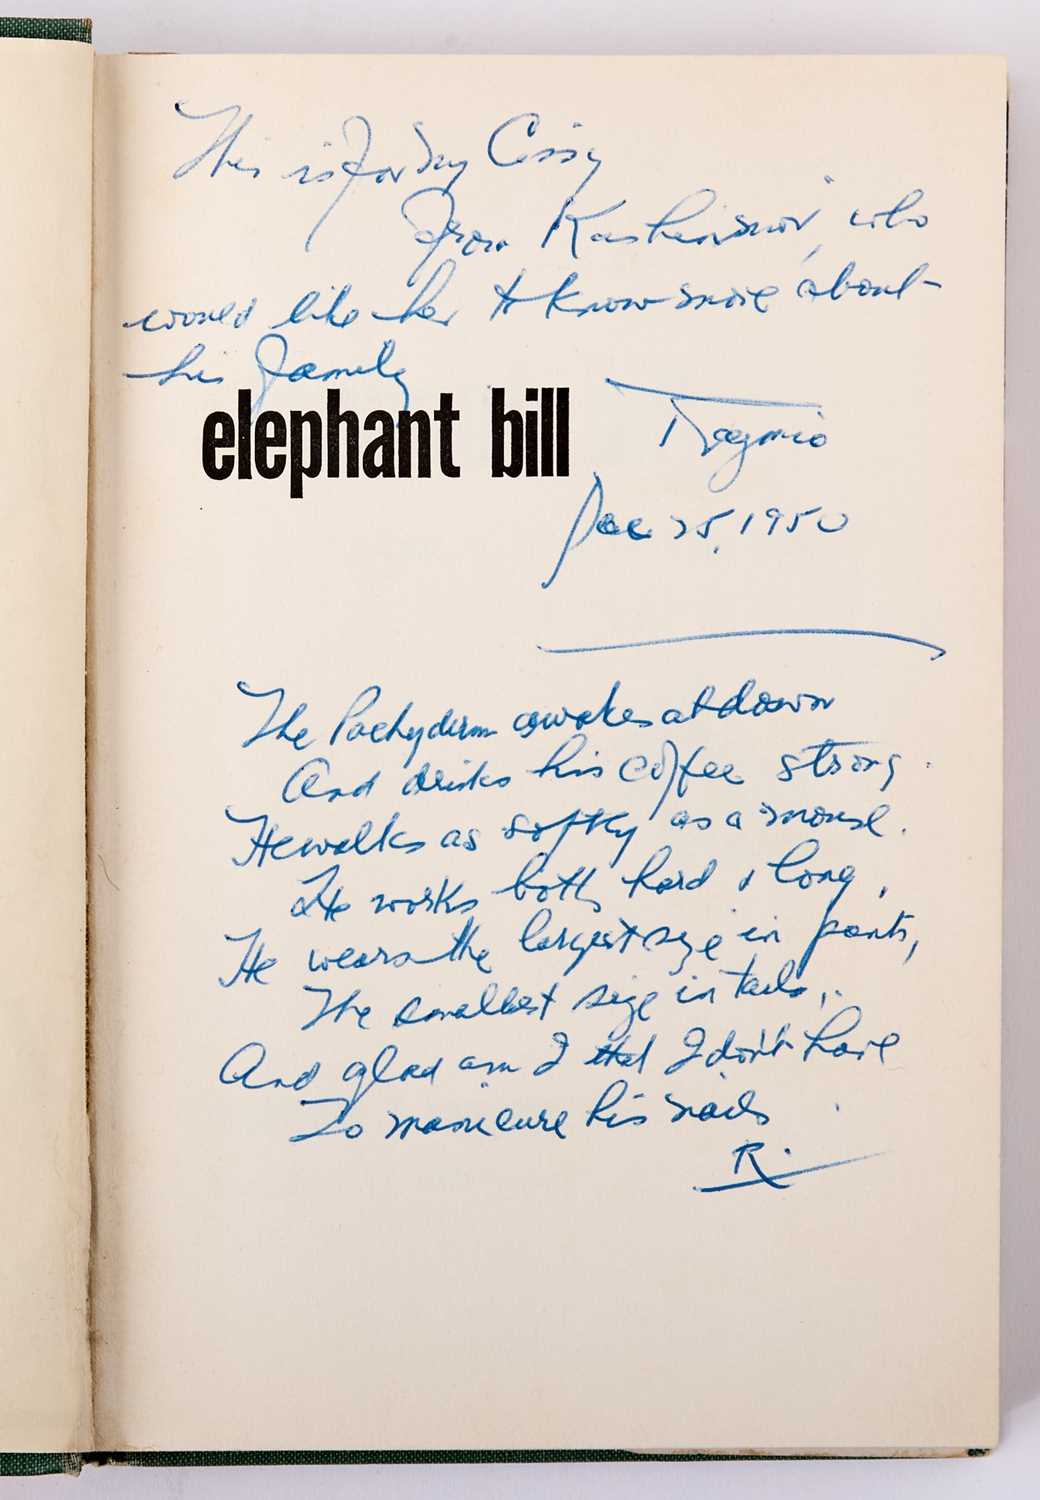 This is for my Cissy
from who
would like her to know more about
his family
elephant bill
Raymio
Dec 25, 1950
The Pachyderm awakes at dawn
And drinks his coffee strong.
He walks as softly as a mouse.
He works both hard & long.
He wears the largest size in pants,
The smallest size in tails,
And glad am I that I don't have
To manicure his nails
R.